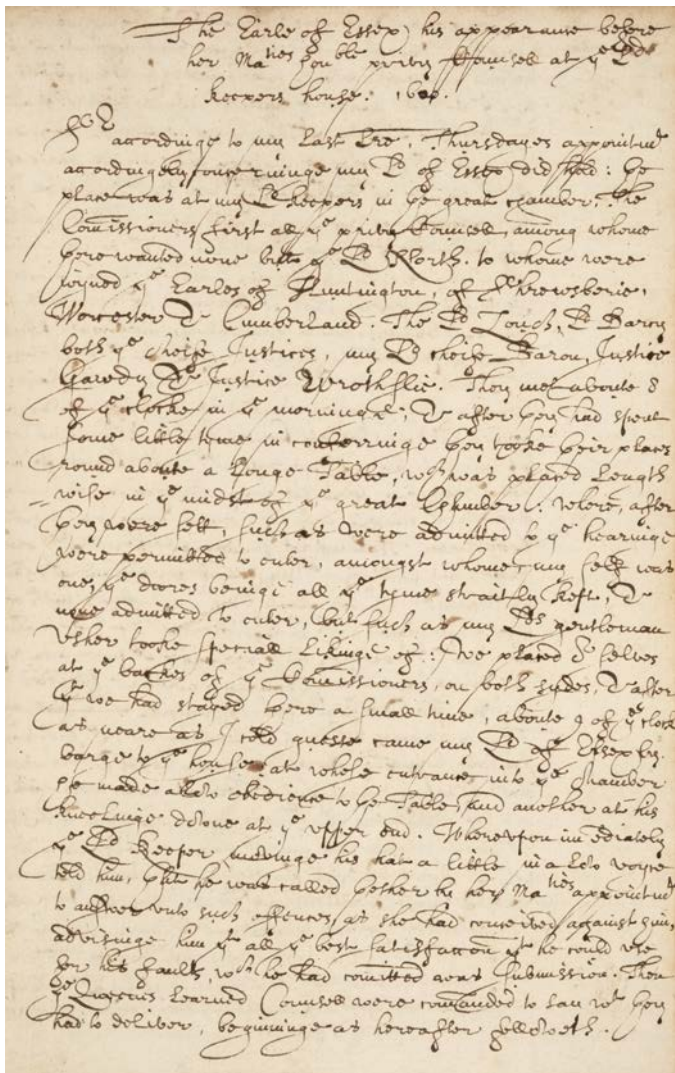 The Earle of Essex his appearaunce before
her Maties honble privy Counsell at ye Ld
Keepers house. 1600.
accordinge to my last Lre, Thursdayes appointmt
accordingely concerninge my Ld of Essex did hold: the
place was at my Ld Keepers in the great chamber, The
Comissioners first all ye privy Counsell, among whome
there wanted none but ye Ld North. to whome were
joyned ye Earles of Huntington, of Shrewsberie,
Worcester & Cumberland. The Ld Zouch, Ld Darcy
both ye cheife Justices, my Ld cheife Baron, Justice
Gawdy & Justice . They met aboute 8
of ye clocke in ye morninge, & after they had spent
some little tyme in conferringe they tooke their places
round aboute a Longe Table, wch was placed Length
wise in ye midst of ye great Chamber: where, after
they were sett, such as were admitted to ye hearinge
were permitted to enter, amongst whome my self was
one, ye doores beinge all ye tyme straitly kept, &
none admitted to enter, but such as my Lds gentleman
Usher tooke speciall likinge of: we placed or selves
at ye backes of ye Comissioners, on both sydes, & after
yt we had stayed there a small time, aboute 9 of ye clock
as neare as I cold guesse came my Ld of Essex by
barge to ye house, at whose entrance into ye chamber
he made a low obedience to the Table, and another at his
kneelinge downe at ye upper end. Whereupon imediately
ye Ld Keeper movinge his hat a little in a low voyce
told him, that he was called thether by her Maties appointmt
to answer unto such offences, as she had conceived against him,
advisinge him yt all ye best satisfaction yt he could use
for his faults, wch he had comitted was submission. Then
ye Queenes Learned Counsell were comanded to say wt they
had to deliver, beginninge as hereafter followeth.